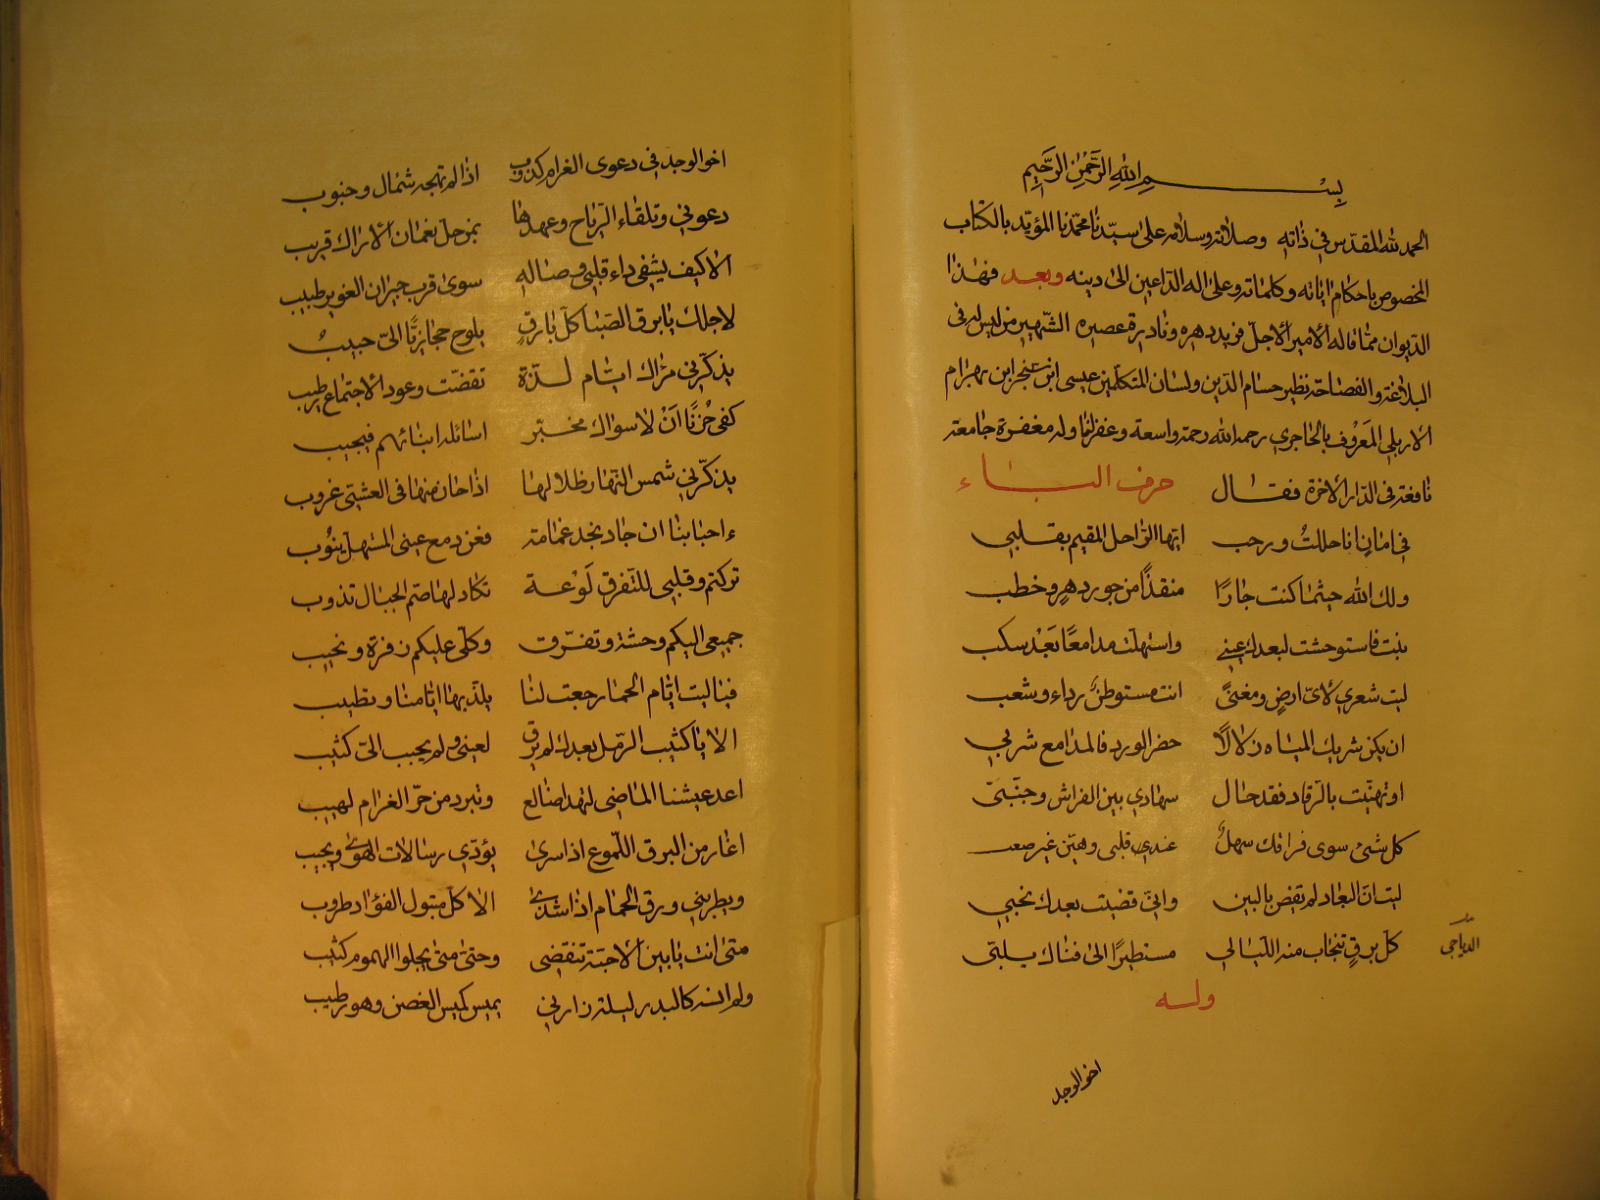 بسم الله الرَّحْمٰنِ الرَّحِيمِ
الحمد لله المقدّس في ذاته وصلاته وسلامه على سيّدنا محمّدنا المؤيّد بالكتاب
المخصوص باحكام اياته وكلماته وعلى اله الداعين الى دينه وبعد فهذا
الديوان ممّا قاله الأمير الأجلّ فريد دهره ونادرة عصره الشّهير من ليس له في
البلاغة والفصاحة نظير حسام الدّين ولسان المتكلّمين عيسى ابن سنجر ابن بهرام
الاربلي المَعْرُوف بالحاجري رحمه الله رحمة واسعة وغفر لنا وله مغفرة جامعة
نافعة في الدّار الأخرة فقال حرف الباء
في امانٍ انا حللتُ ورحب ايّها الرّاحل المقيم بقلبي
ولك الله حيثما كنت جارًا منقذًا من جور دهرٍ وخطب
بنت فاستوحشت لبعدك عيني واستهلّت مدامعًا بَعْد سكب
ليت شعري لأىّ ارضٍ ومغنىً انت مستوطنٌ رداء وشعب
ان يكن شربك المياه زلالًا حضر الورد فالمدامع شربي
او تهنّيت بالرّقاد فقد حال سهادي بين الفراش وجنبىّ
كل شئ سوى فراقك سهلٌ عندي قلبى وهيّن غير صعب
ليت انّ البعاد لم يقض بالبين وانّي قضيت بعدك نحبي
كلّ برقٍ تنجاب منه اللّيالي مستطيرًا الى فناك يلبّى
الدياجي
وله
اخو الوجد
اخو الوجد في دعوى الغرام كذوب اذا لم تهجه شمال وجنوب
دعوني وتلقاء الرّياح وعهدها بمن حل نعمان الأراك قريب
الا كيف يشفى داء قلبي وصاله سوى قرب جيران الغوير طبيب
لاجلك يا برق الصّبا كلّ بارقٍ يلوح حجازيًّا الىّ حبيبُ
يذكّرني مرّاك ايّام لذّة تقضّت وعود الأجتماع رطيب
كفى حُزنًا اَنْ لا سواك مخبّر اسائله ابنائهم فيجيب
يذكّرني شمس النّهار ظلالها اذا حان منها في العشىّ غروب
ءاحبابنا ان جاد نجد غمامة فعن دمع عينى المستهلّ ينُوب
تركتم وقلبي للتّفرق لَوْعة تكاد لها صمّ الجبال تذوب
جميعى اليكم وحشة وتفرّق وكلّى عليكم زفرة ونحيب
فياليت ايّام الحما رجعت لنا يلذّ بها ايّامنا وتطيب
الا يا كثيب الرّمل بعدك لم يرق لعينى ولم يحبب الىّ كثيب
اعد عيشنا الماضى لتهدا ضالع وتبرد من حرّ الغرام لهيب
اغار من البرق اللّموع اذا سرى يؤدّي رسالات الهوىٰ ويجيب
ويطربني ورق الحمام اذا شدىٰ الا كلّ متبول الفؤاد طروب
متى انت يا بين الأحبّة تنقضى وحتى متى يجلوا الهموم كئيب
ولم انسه كالبدر ليلة زارني يميس كميس الغصن وهو رطيب